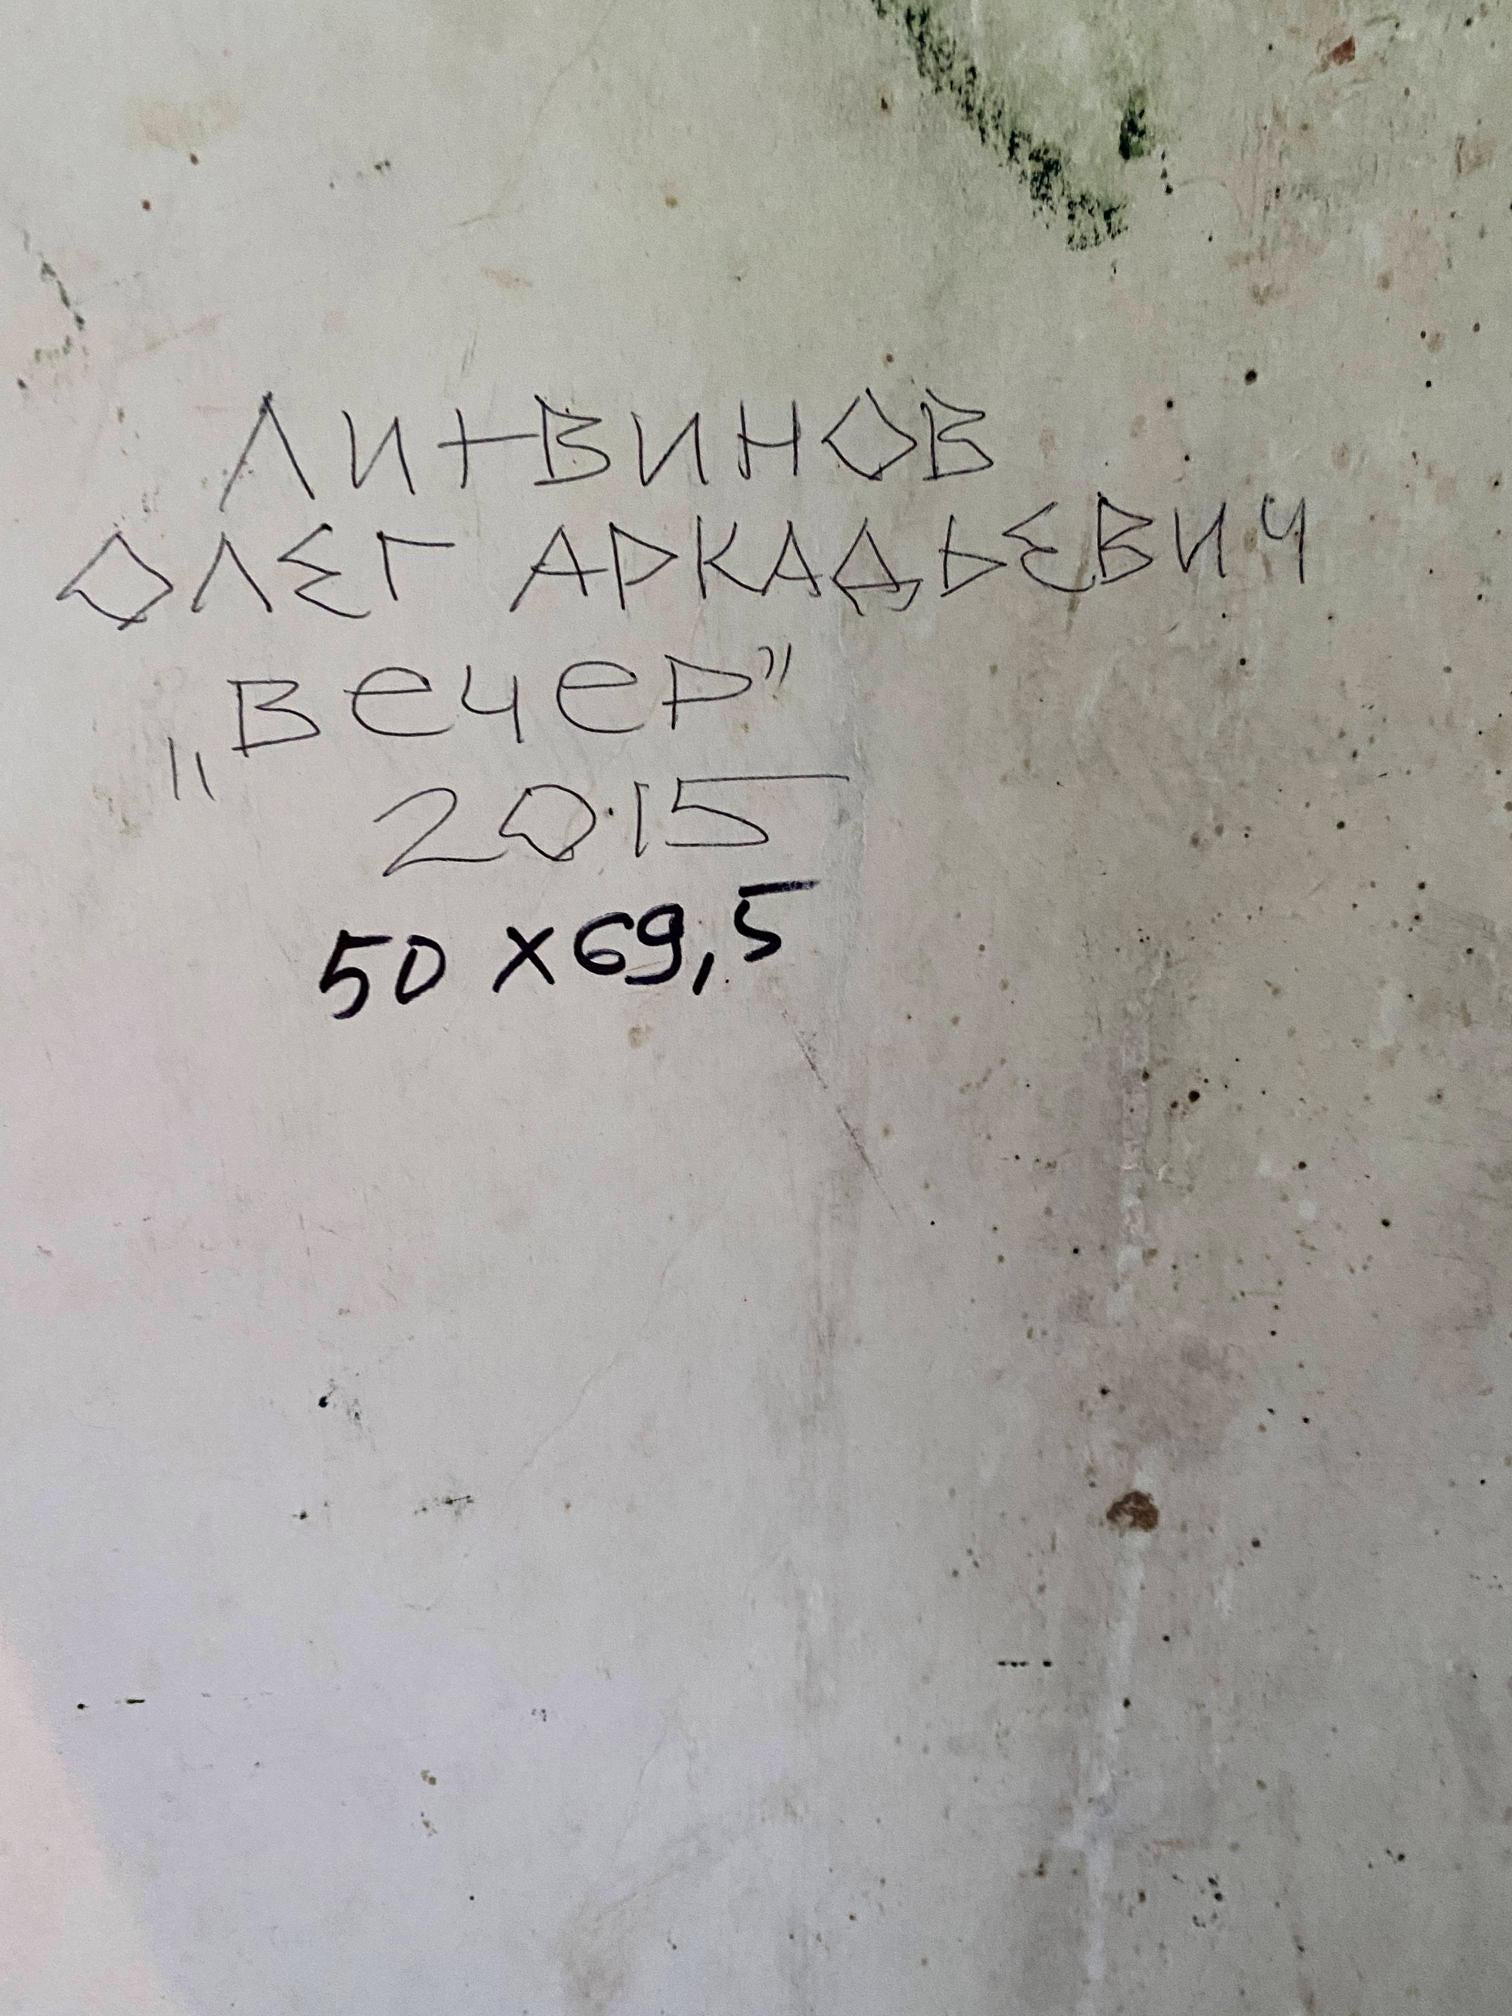 ЛИТВИНОВ
ОЛЕГ АРКАДЬЕВИЧ
„ВеЧеР”
2015
50 x 69,5